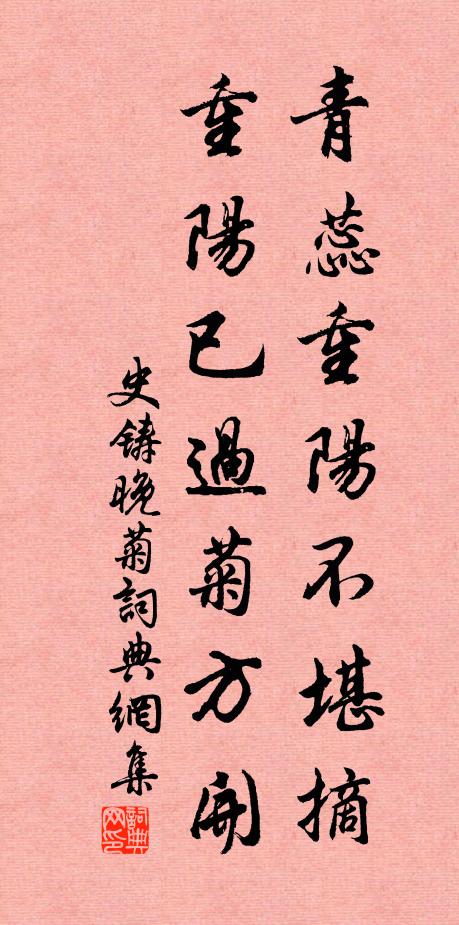 青蕊重陽不堪摘
重陽已過菊方開
史鑄晚菊詞典網集
詞典网印